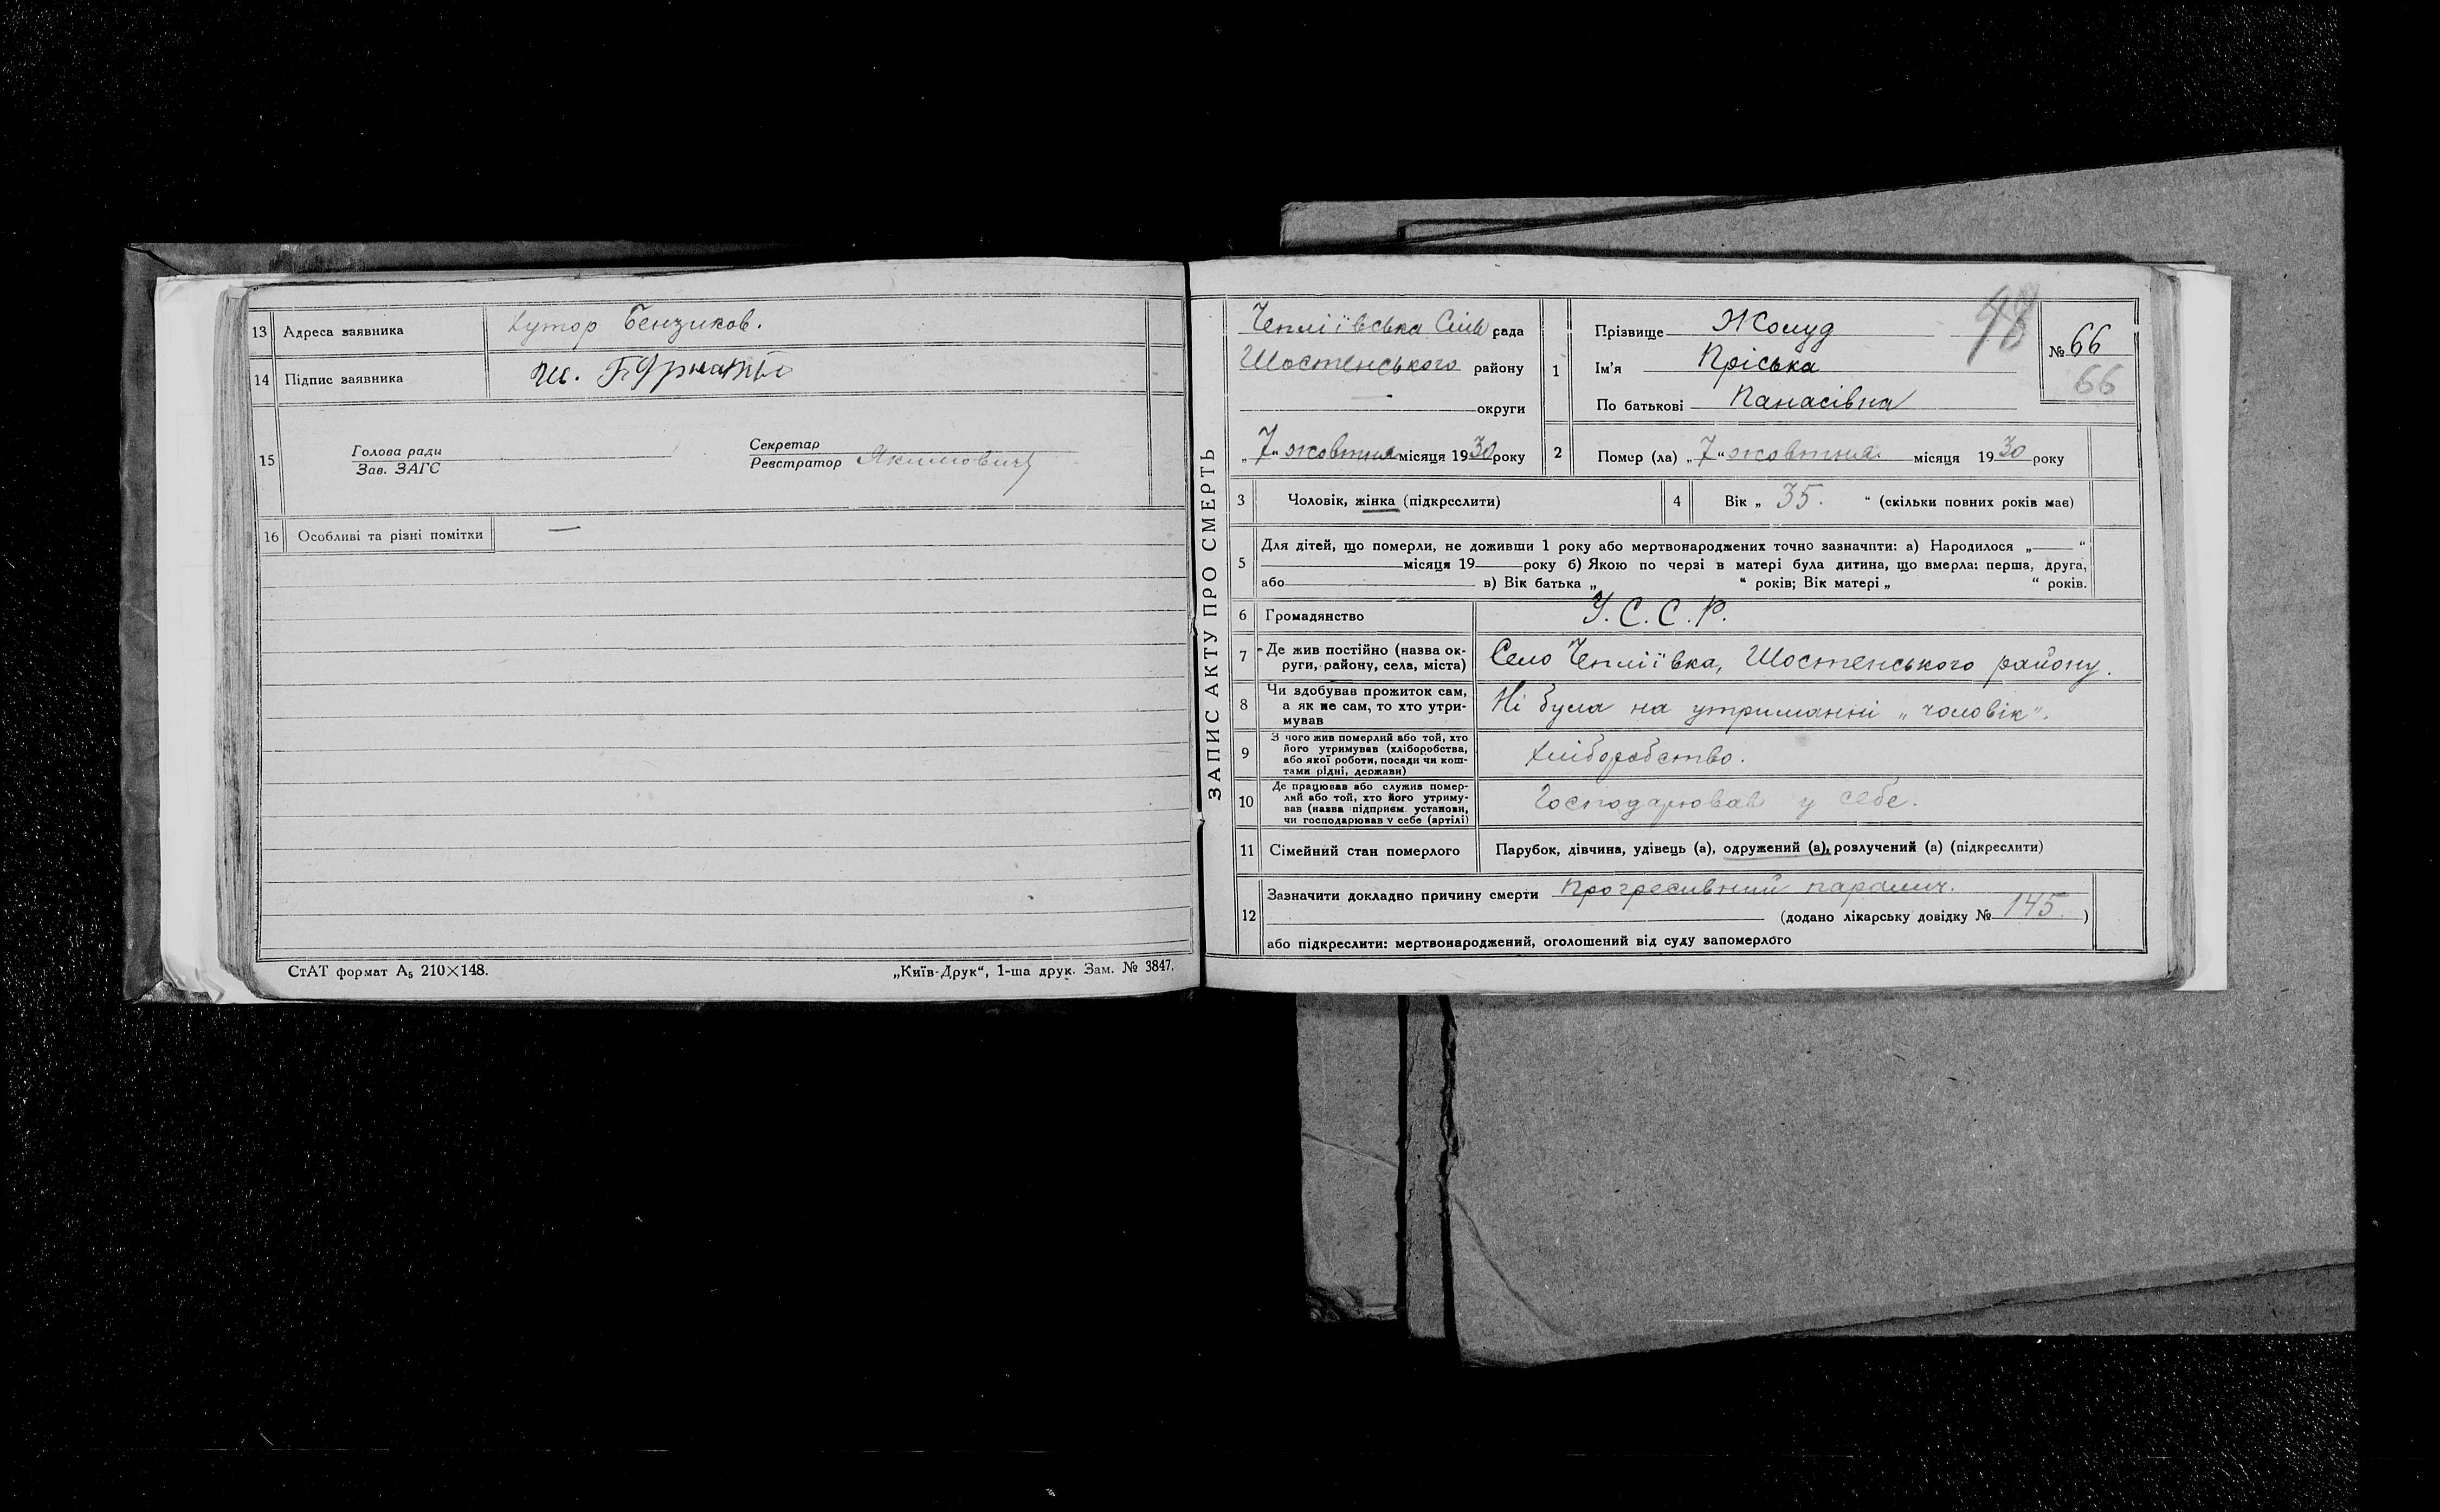 13 Адреса заявника Хутор Бензиков.
14 Підпис заявника
15 Голова ради Зав. ЗАГС Секретар Реєстратор Якимович
16 Особливі та різні помітки —
СтАТ формат А₅ 210×148. „Київ-Друк“, 1-ша друк. Зам. № 3847.
ЗАПИС АКТУ ПРО СМЕРТЬ
Чепліївська Сіль рада
Шостенського району
округи
„7“ жовтня місяця 1930 року
1 Прізвище Жолуд
Ім’я Пріська
По батькові Панасівна
98
№ 66
66
2 Помер (ла) „7“ жовтня місяця 1930 року
3 Чоловік, жінка (підкреслити)
4 Вік „ 35. “ (скільки повних років має)
5 Для дітей, що померли, не доживши 1 року або мертвонароджених точно зазначити: а) Народилося „ “
місяця 19 року б) Якою по черзі в матері була дитина, що вмерла: перша, друга,
або в) Вік батька „ “ років; Вік матері „ “ років.
6 Громадянство У.С.С.Р.
7 Де жив постійно (назва ок-
руги, району, села, міста) Село Чепліївка, Шостенського району.
8 Чи здобував прожиток сам,
а як не сам, то хто утри-
мував Ні була на утриманні „чоловік“.
9 З чого жив померлий або той, хто
його утримував (хліборобства,
або якої роботи, посади чи кош-
тами рідні, держави) Хліборобство.
10 Де працював або служив помер-
лий або той, хто його утриму-
вав (назва підприєм. установи,
чи господарював у себе (артілі) Господарював у себе.
11 Сімейний стан померлого Парубок, дівчина, удівець (а), одружений (а), розлучений (а) (підкреслити)
12 Зазначити докладно причину смерти Прогресивний параліч.
(додано лікарську довідку № 145.)
або підкреслити: мертвонароджений, оголошений від суду запомерлого